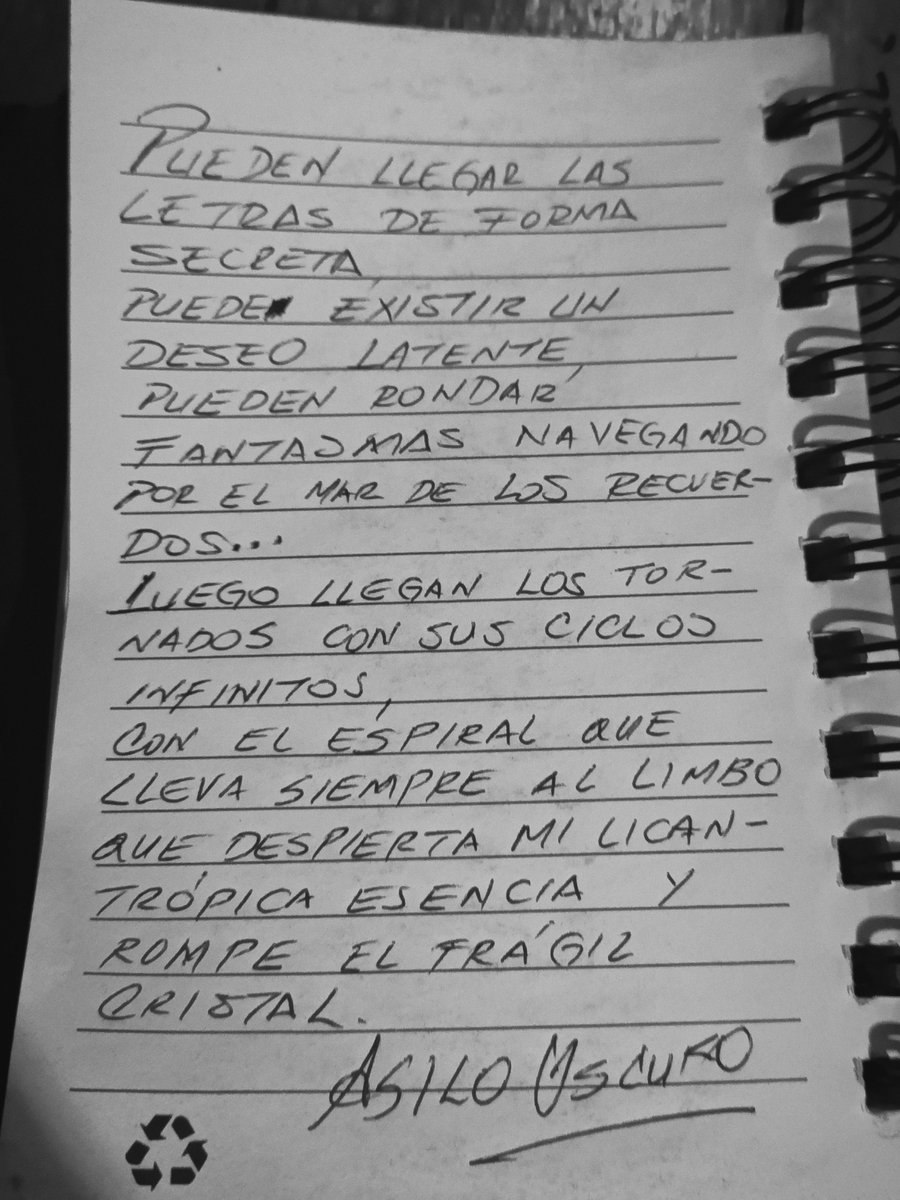 PUEDEN LLEGAR LAS
LETRAS DE FORMA
SECRETA,
PUEDE EXISTIR UN
DESEO LATENTE,
PUEDEN RONDAR
FANTASMAS NAVEGANDO
POR EL MAR DE LOS RECUER-
DOS...
LUEGO LLEGAN LOS TOR-
NADOS CON SUS CICLOS
INFINITOS,
CON EL ESPIRAL QUE
LLEVA SIEMPRE AL LIMBO
QUE DESPIERTA MI LICAN-
TRÓPICA ESENCIA Y
ROMPE EL FRÁGIL
CRISTAL.
ASILO OSCURO